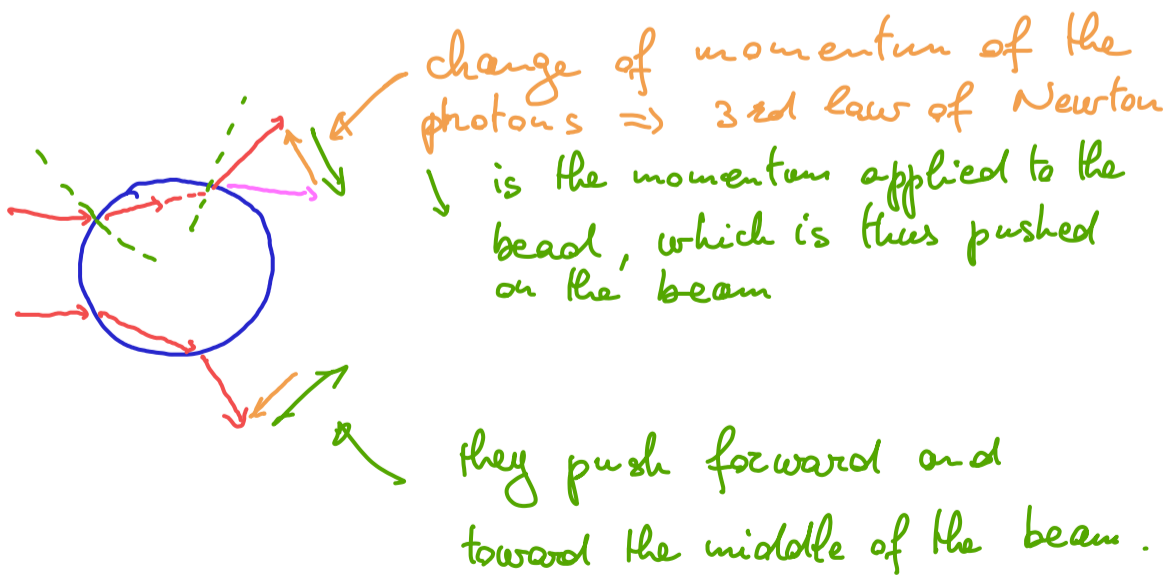 change of momentum of the
photons => 3rd law of Newton
is the momentum applied to the
bead, which is thus pushed
on the beam
they push forward and
toward the middle of the beam.